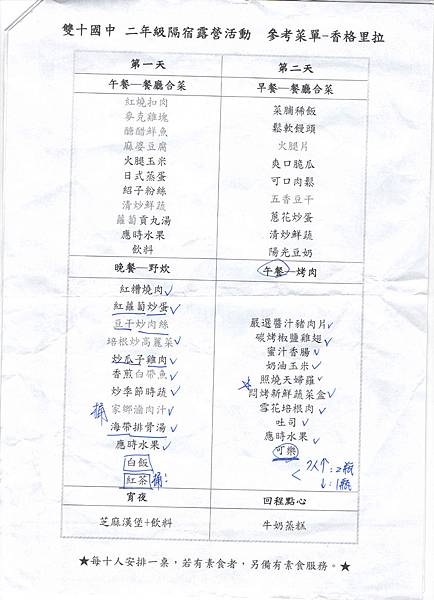 雙十國中 二年級隔宿露營活動 參考菜單-香格里拉
第一天
午餐—餐廳合菜
紅燒扣肉
麥克雞塊
醋醋鮮魚
麻婆豆腐
火腿玉米
日式蒸蛋
紹子粉絲
清炒鮮蔬
蘿蔔貢丸湯
應時水果
飲料
晚餐—野炊
紅糟燒肉
紅蘿蔔炒蛋
豆干炒肉絲
培根炒高麗菜
炒瓜子雞肉
香煎白帶魚
炒季節時蔬
家鄉滷肉汁
海帶排骨湯
應時水果
白飯
紅茶
宵夜
芝麻漢堡+飲料
第二天
早餐—餐廳合菜
菜脯稀飯
鬆軟饅頭
火腿片
爽口脆瓜
可口肉鬆
五香豆干
蔥花炒蛋
清炒鮮蔬
陽光豆奶
午餐—烤肉
嚴選醬汁豬肉片
碳烤椒鹽雞翅
蜜汁香腸
奶油玉米
照燒天婦羅
悶烤新鮮蔬菜盒
雪花培根肉
吐司
應時水果
可樂
7人↑:2瓶
↓:1瓶
回程點心
牛奶蒸糕
★每十人安排一桌，若有素食者，另備有素食服務。★